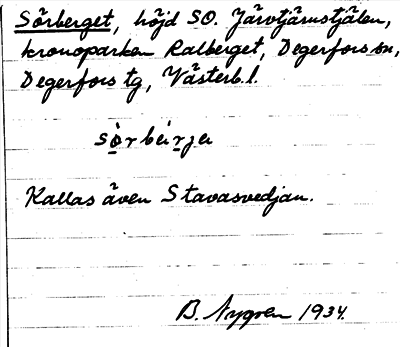 Sörberget, höjd SO. Järvtjärnstjälen,
kronoparken Ralberget, Degerfors sn,
Degerfors tg, Västerb. l.
Kallas även Stavasvedjan.
B. Nygren 1934.